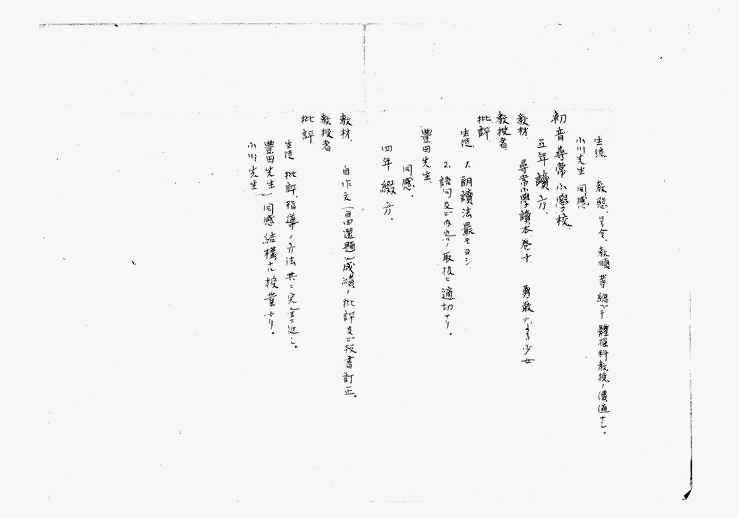 生徒 教態、号令、教順 等 總ベテ 體操科教授ノ價値ナシ。
小川先生 同感
初音尋常小學校
五年 讀方、
教材、 尋常小學讀本巻十 勇敢ナル少女
教授者
批評
生徒 1. 朗讀法最モヨシ
2. 語句及ビ内容ノ取扱ヒ適切ナリ。
豐田先生、
同感、
四年 綴方、
教材、 自作文(自由選題)成績ノ批評及ビ板書訂正。
教授者
批評
生徒 批評、指導ノ方法共ニ完全ニ近シ。
豐田先生 同感 結構ナル授業ナリ。
小川先生